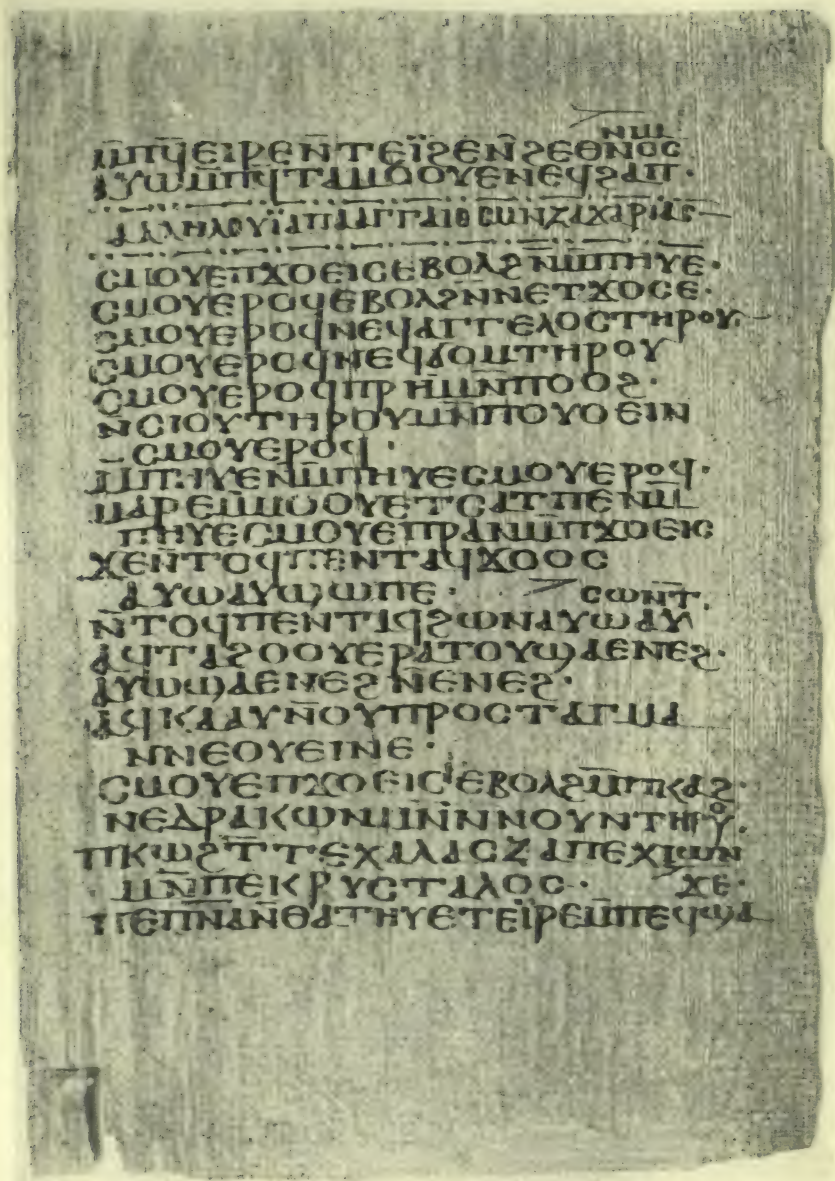 ⲛⲙ̅
ⲙ̅ⲡϥ̅ⲉⲓⲣⲉⲛ̅ⲧⲉⲓ̈ϩⲉⲛ̅ϩⲉⲑⲛⲟⲥ
ⲁⲩⲱⲙ̅ⲡϥ̅ⲧⲁⲙⲟⲟⲩⲉⲛⲉϥϩⲁⲡ·
ⲁⲗⲗⲏⲗⲟⲩⲓ̈ⲁⲡⲁⲁⲅⲅⲁⲓⲟⲥⲙⲛ̅ⲍⲁⲭⲁⲣⲓⲁⲥ
ⲥⲙⲟⲩⲉⲡϫⲟⲉⲓⲥⲉⲃⲟⲗϩⲛ̅ⲙ̅ⲡⲏⲩⲉ·
ⲥⲙⲟⲩⲉⲣⲟϥⲉⲃⲟⲗϩⲛ̅ⲛⲉⲧϫⲟⲥⲉ·
ⲥⲙⲟⲩⲉⲣⲟϥⲛⲉϥⲁⲅⲅⲉⲗⲟⲥⲧⲏⲣⲟⲩ·
ⲥⲙⲟⲩⲉⲣⲟϥⲛⲉϥϭⲟⲙⲧⲏⲣⲟⲩ
ⲥⲙⲟⲩⲉⲣⲟϥⲡⲣⲏⲙⲛ̅ⲡⲟⲟϩ·
ⲛⲥⲓⲟⲩⲧⲏⲣⲟⲩⲙⲛ̅ⲡⲟⲩⲟⲉⲓⲛ
ⲥⲙⲟⲩⲉⲣⲟϥ·
ⲙ̅ⲡⲏⲩⲉⲛⲙ̅ⲡⲏⲩⲉⲥⲙⲟⲩⲉⲣⲟϥ·
ⲙⲁⲣⲉⲙ̅ⲙⲟⲟⲩⲉⲧⲥⲁⲧⲡⲉⲛⲙ̅
ⲡⲏⲩⲉⲥⲙⲟⲩⲉⲡⲣⲁⲛⲙ̅ⲡϫⲟⲉⲓⲥ
ϫⲉⲛ̅ⲧⲟϥⲡⲉⲛⲧⲁϥϫⲟⲟⲥ
ⲁⲩⲱⲁⲩϣⲱⲡⲉ·
ⲥⲱⲛⲧ̅·
ⲛ̅ⲧⲟϥⲡⲉⲛⲧⲁϥϩⲱⲛⲁⲩⲱⲁⲩ
ⲁϥⲧⲁϩⲟⲟⲩⲉⲣⲁⲧⲟⲩϣⲁⲉⲛⲉϩ·
ⲁⲩⲱϣⲁⲉⲛⲉϩⲛ̅ⲉⲛⲉϩ·
ⲁϥⲕⲁⲁⲩⲛ̅ⲟⲩⲡⲣⲟⲥⲧⲁⲅⲙⲁ
ⲛⲛⲉⲟⲩⲉⲓⲛⲉ·
ⲥⲙⲟⲩⲉⲡϫⲟⲉⲓⲥⲉⲃⲟⲗϩⲙ̅ⲡⲕⲁϩ·
ⲛⲉⲇⲣⲁⲕⲱⲛⲙⲛ̅ⲛ̅ⲛⲟⲩⲛⲧⲏⲣⲟⲩ·
ⲡⲕⲱϩⲧ̅ⲧⲉⲭⲁⲗⲁⲍⲁⲡⲉⲭⲓⲱⲛ
ⲙⲛ̅ⲡⲉⲕⲣⲩⲥⲧⲁⲗⲟⲥ·
ϫⲉ·
ⲡⲉⲡⲛ̅ⲁⲛ̅ϩⲁⲧⲏⲩⲉⲧⲉⲓ̈ⲣⲉⲙ̅ⲡⲉϥϣⲁ